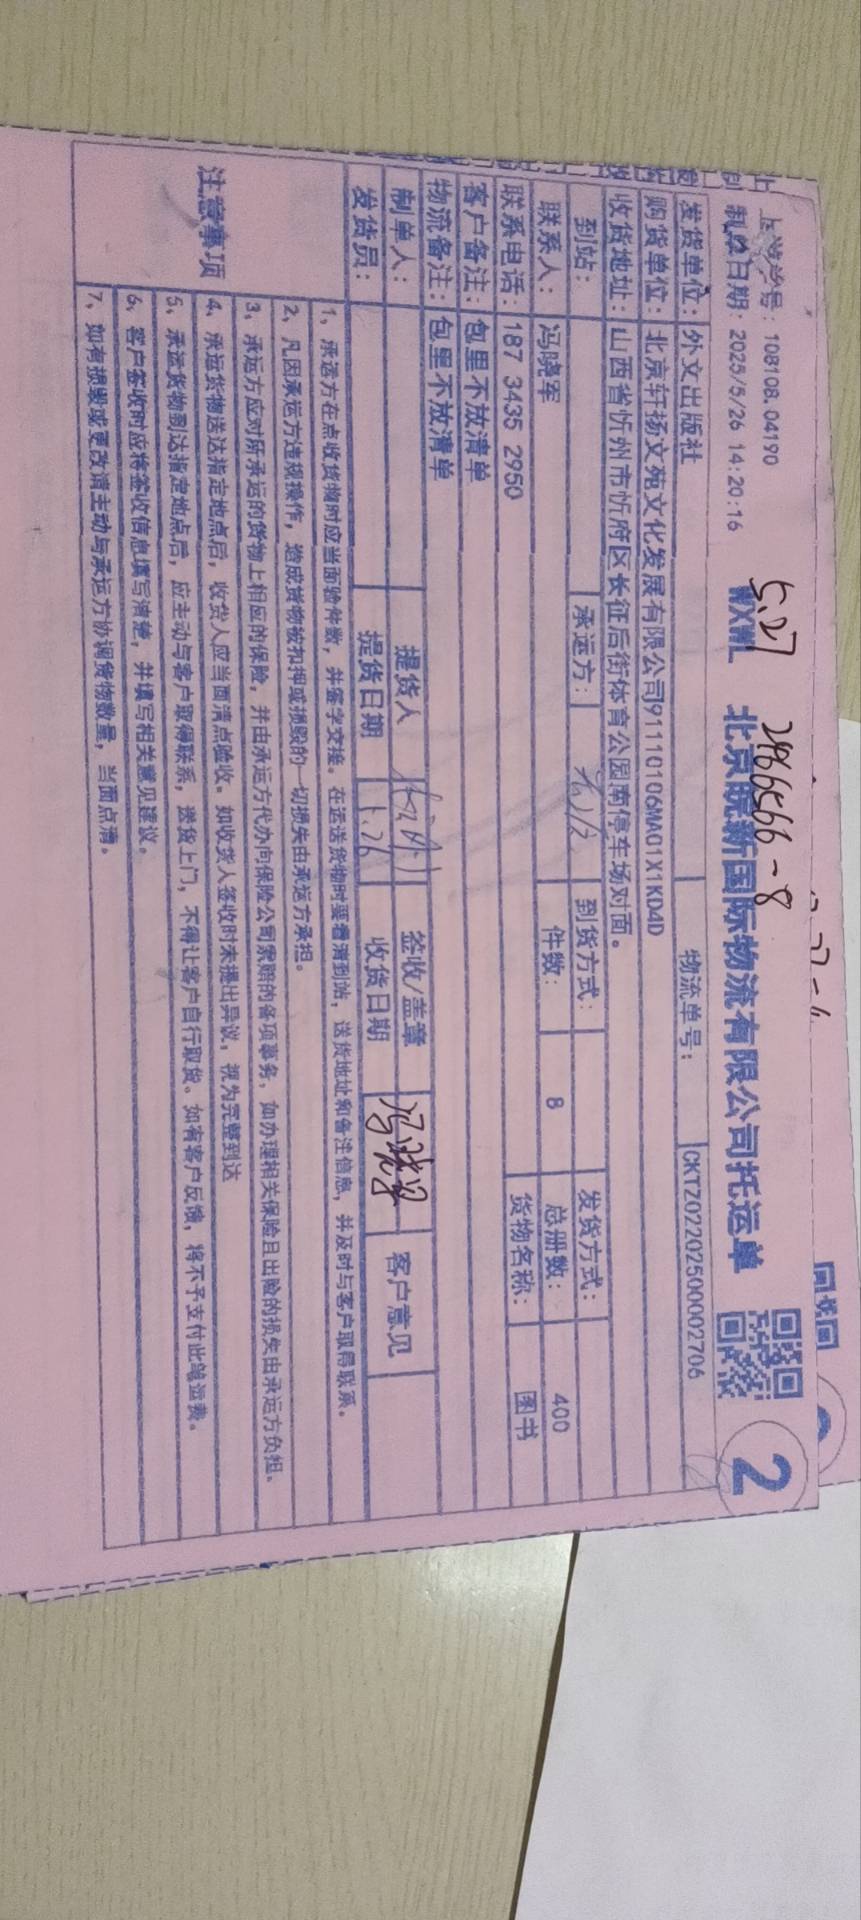 108108.04190
制单日期：2025/5/26 14:20:16
5.27 2986566-8
WXWL 北京皖新国际物流有限公司托运单
2
发货单位：外文出版社 物流单号：CKTZ02202500002706
购货单位：北京轩扬文苑文化发展有限公司91110106MA01X1KD4D
收货地址：山西省忻州市忻府区长征后街体育公园南停车场对面。
到站： 承运方： 到货方式： 发货方式：
联系人：冯晓军 件数： 8 总册数： 400
联系电话：187 3435 2950 货物名称： 图书
客户备注：包里不放清单
物流备注：包里不放清单
制单人： 提货人 签收/盖章 冯晓军 客户意见
发货员： 提货日期 5.26 收货日期
注意事项
1、承运方在点收货物时应当面验件数，并签字交接。在运送货物时要看清到站，送货地址和备注信息，并及时与客户取得联系。
2、凡因承运方违规操作，造成货物被扣押或损毁的一切损失由承运方承担。
3、承运方应对所承运的货物上相应的保险，并由承运方代办向保险公司索赔的各项事务，如办理相关保险且出险的损失由承运方负担。
4、承运货物送达指定地点后，收货人应当面清点验收。如收货人签收时未提出异议，视为完整到达
5、承运货物到达指定地点后，应主动与客户取得联系，送货上门，不得让客户自行取货。如有客户反馈，将不予支付此笔运费。
6、客户签收时应将签收信息填写清楚，并填写相关意见建议。
7、如有损毁或更改请主动与承运方协调货物数量，当面点清。